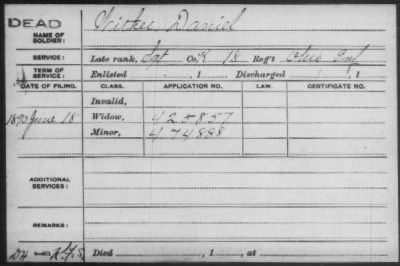 DEAD
NAME OF SOLDIER: Daniel
SERVICE: Late rank, Sgt Co. K 18 Reg't Ohio Inf
TERM OF SERVICE: Enlisted , 1 Discharged , 1
DATE OF FILING. CLASS. APPLICATION NO. LAW. CERTIFICATE NO.
Invalid,
1890 June 18 Widow, 425857
Minor, 474888
ADDITIONAL SERVICES:
REMARKS:
Died , 1 , at